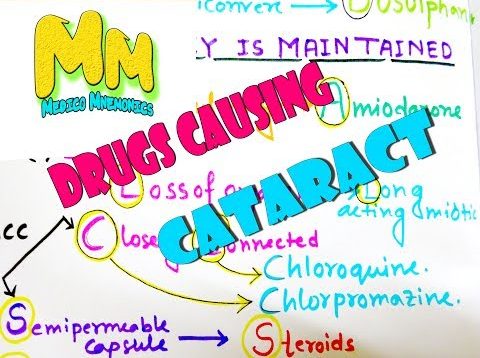 iconvere → Busulphan
Mm
MEDICO MNEMONICS
Y IS MAINTAINED
Amiodarone
DRUGS CAUSING
CATARACT
Loss of
Long
acting miotic
cc
Closely Connected
Chloroquine.
Chlorpromazine.
Semipermeable
capsule → Steroids